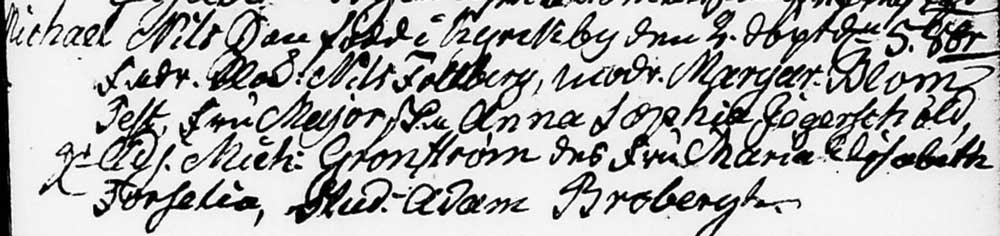 Michael Nils Son född i Kyrkby den 2. döpt den 5.
Fadr. Nils Follberg, modr. Margar. Blom
Test. Fru Major Anna Sophia Jägerschöld,
Adj. Mich: Gronström des Fru Maria Elisabeth
Forselia, Stud: Adam Broberg